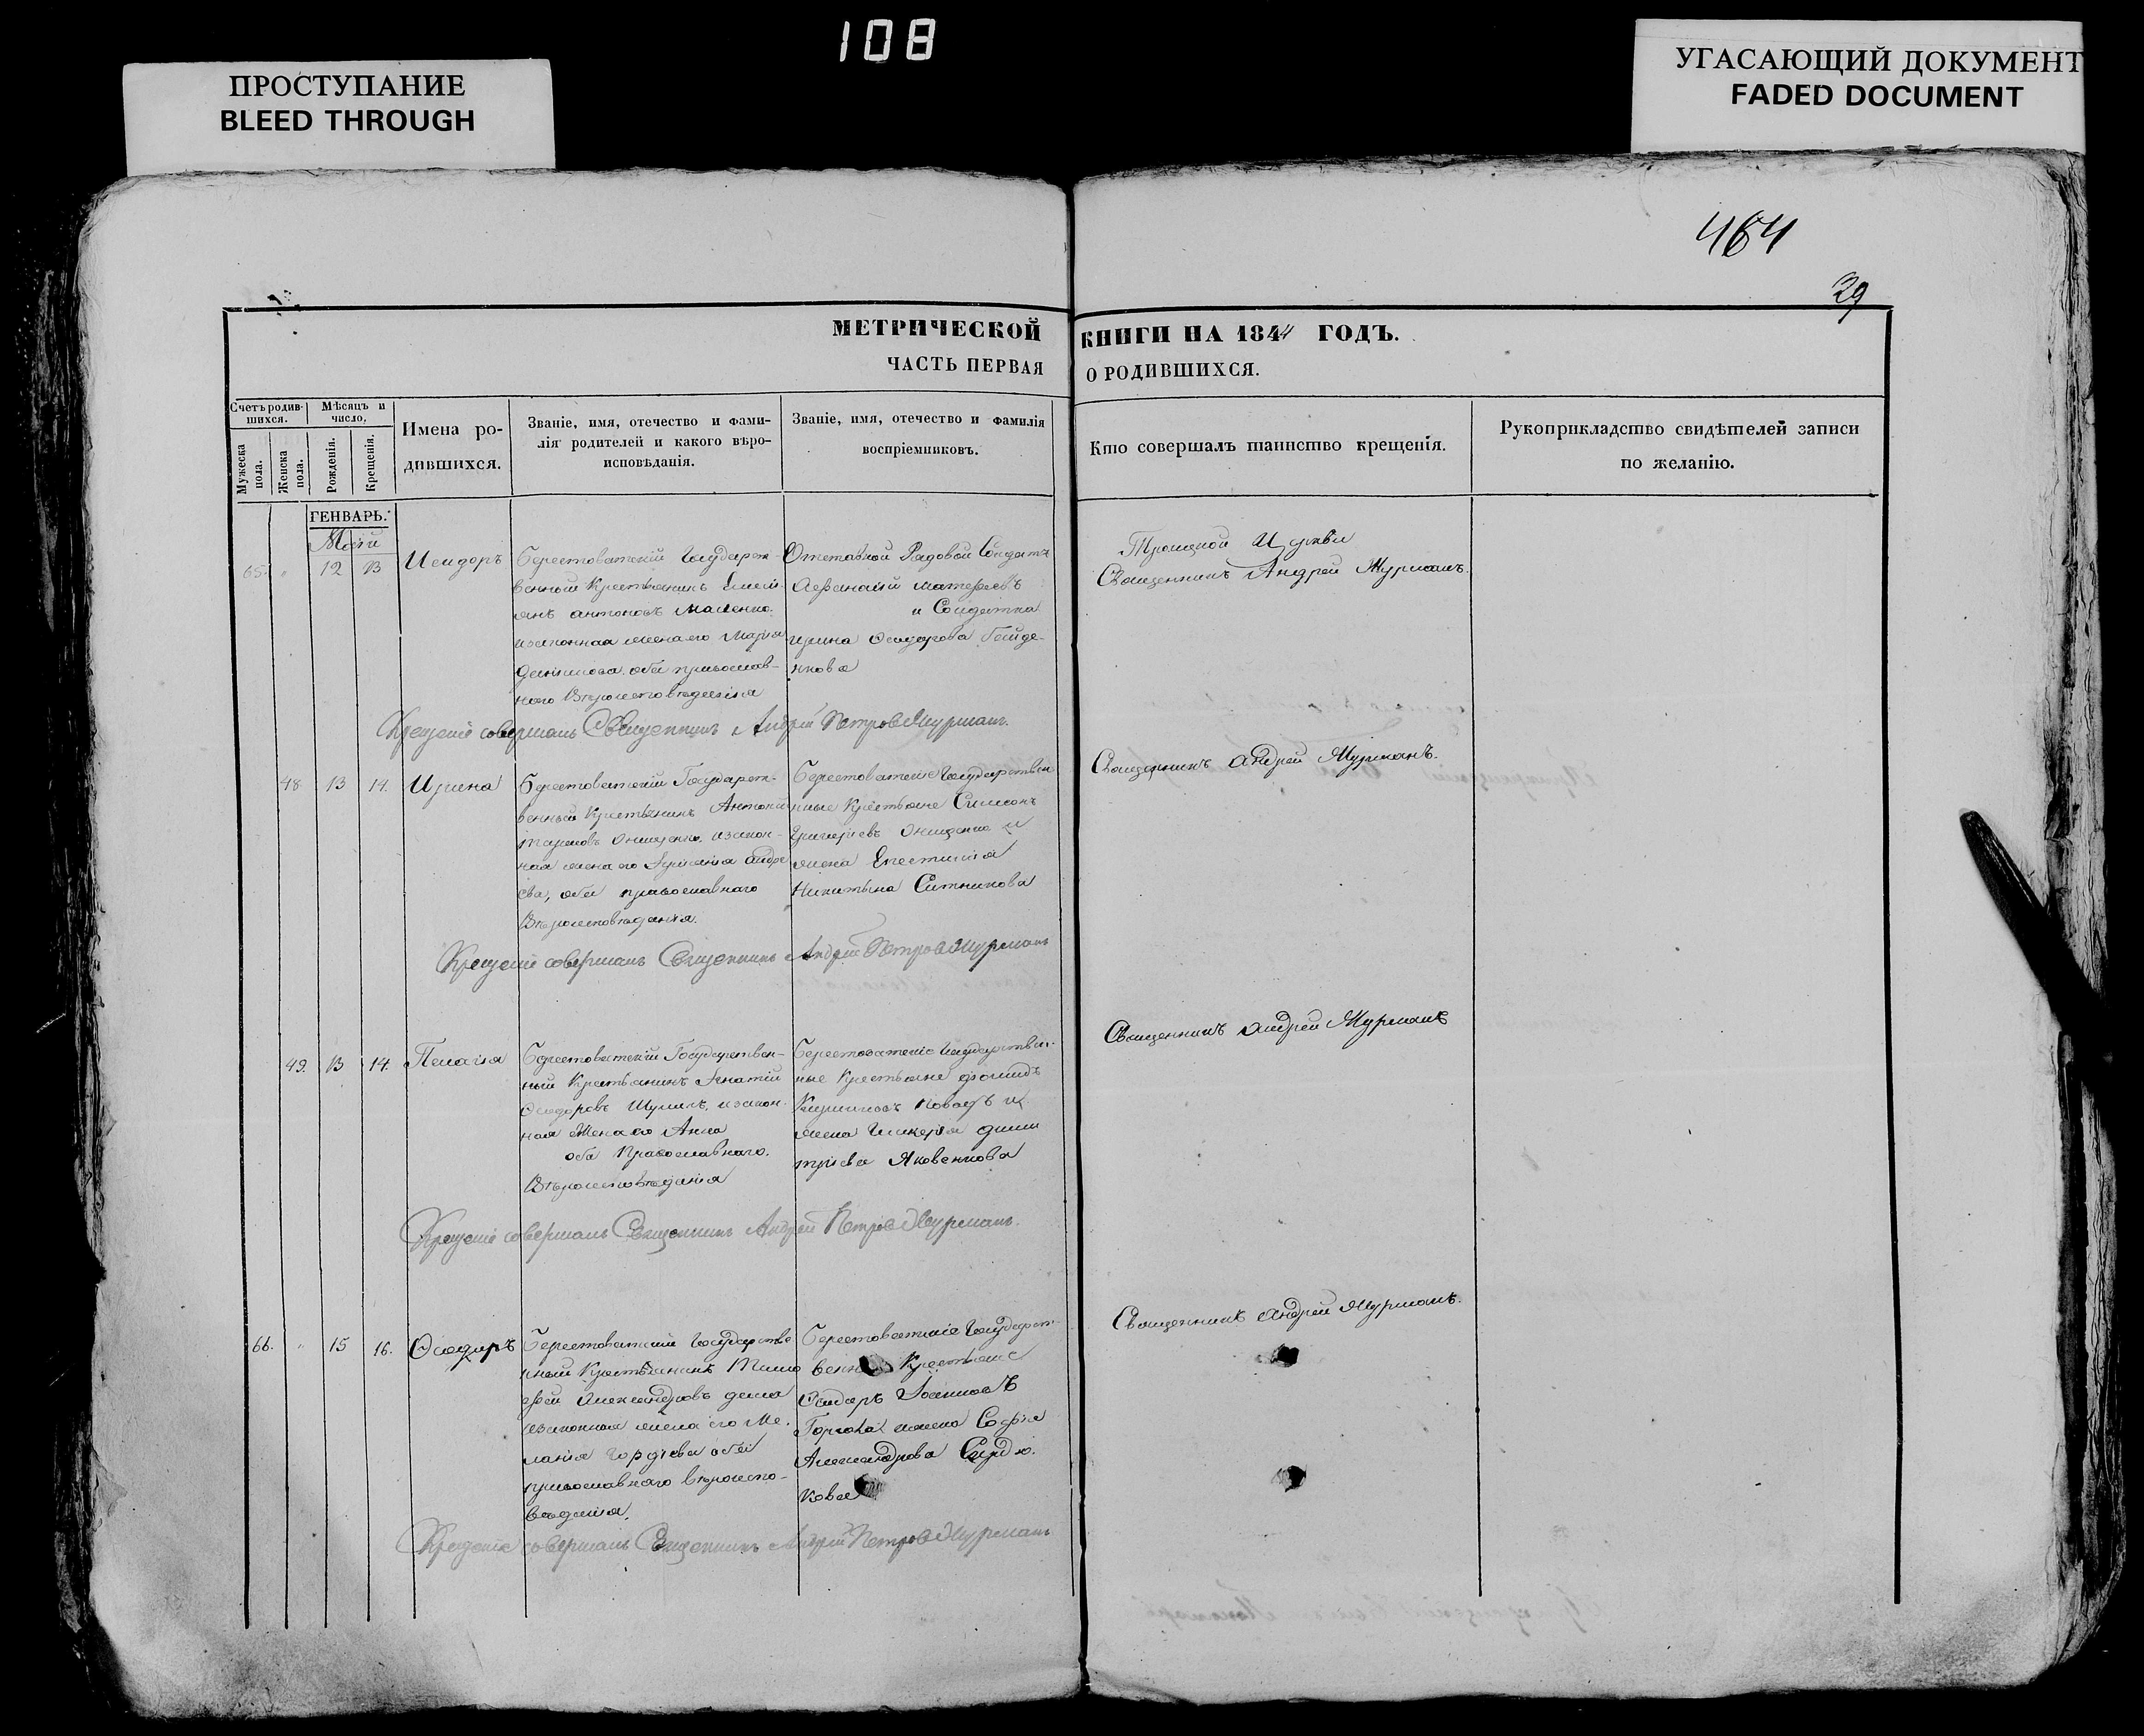 108
ПРОСТУПАНИЕ
BLEED THROUGH
УГАСАЮЩИЙ ДОКУМЕНТ
FADED DOCUMENT
464
29
МЕТРИЧЕСКОЙ КНИГИ НА 1844 ГОДЪ.
ЧАСТЬ ПЕРВАЯ О РОДИВШИХСЯ.
Счетъ родив-
шихся.
Мужеска пола.
Женска пола.
Мѣсяцъ и число.
Рожденія.
Крещенія.
Имена ро-
дившихся.
Званіе, имя, отечество и фами-
лія родителей и какого вѣро-
исповѣданія.
Званіе, имя, отечество и фамилія
воспріемниковъ.
Кто совершалъ таинство крещенія.
Рукоприкладство свидѣтелей записи
по желанію.
ГЕНВАРЬ.
Маій
65. " 12 13 Исидоръ
Берестоватскій Государст-
венный Крестьянинъ Емелі-
янъ Антоновъ
изаконная жена его Марія
оба православ-
наго Вѣроисповѣданія
Отставной Рядовой Солдатъ
Афанасій Матфеевъ
и Солдатка
Ирина
Троицкой Церкви
Священникъ Андрей Журманъ.
Крещеніе совершалъ Священникъ Андрей Петровъ Журманъ.
48 13 14. Ирина
Берестоватскій Государст-
венный Крестьянинъ Антоній
Тарасовъ Онищенко, изакон-
ная жена его
ева, оба православнаго
Вѣроисповѣданія.
Берестоватскіе Государствен
ные Крестьяне Симеонъ
Григоріевъ Онищенко и
жена
Никитина Ситникова
Священникъ Андрей Журманъ.
Крещеніе совершалъ Священникъ Андрей Петровъ Журманъ
49. 13 14. Пелагія
Берестоватскій Государствен-
ный Крестьянинъ Игнатій
Ѳеодоровъ изакон-
ная Жена его Анна
оба Православнаго.
Вѣроисповѣданія
Берестоватскіе Государствен-
ные Крестьяне
жена Гликерія Дими
тріева Яковенкова
Священникъ Андрей Журманъ
Крещеніе совершалъ Священникъ Андрей Петровъ Журманъ.
66. " 15 16. Ѳеодоръ
Берестоватскій Государстве
нный Крестьянинъ Тимо
фей Александровъ
изаконная жена его Ме-
ланія Гордіева обаи
православнаго вѣроиспо-
вѣданія.
Берестоватскіе Государст-
Крестьяне
жена Софія
Александрова Сердю-
кова
Священникъ Андрей Журманъ.
Крещеніе совершалъ Священникъ Андрей Петровъ Журманъ